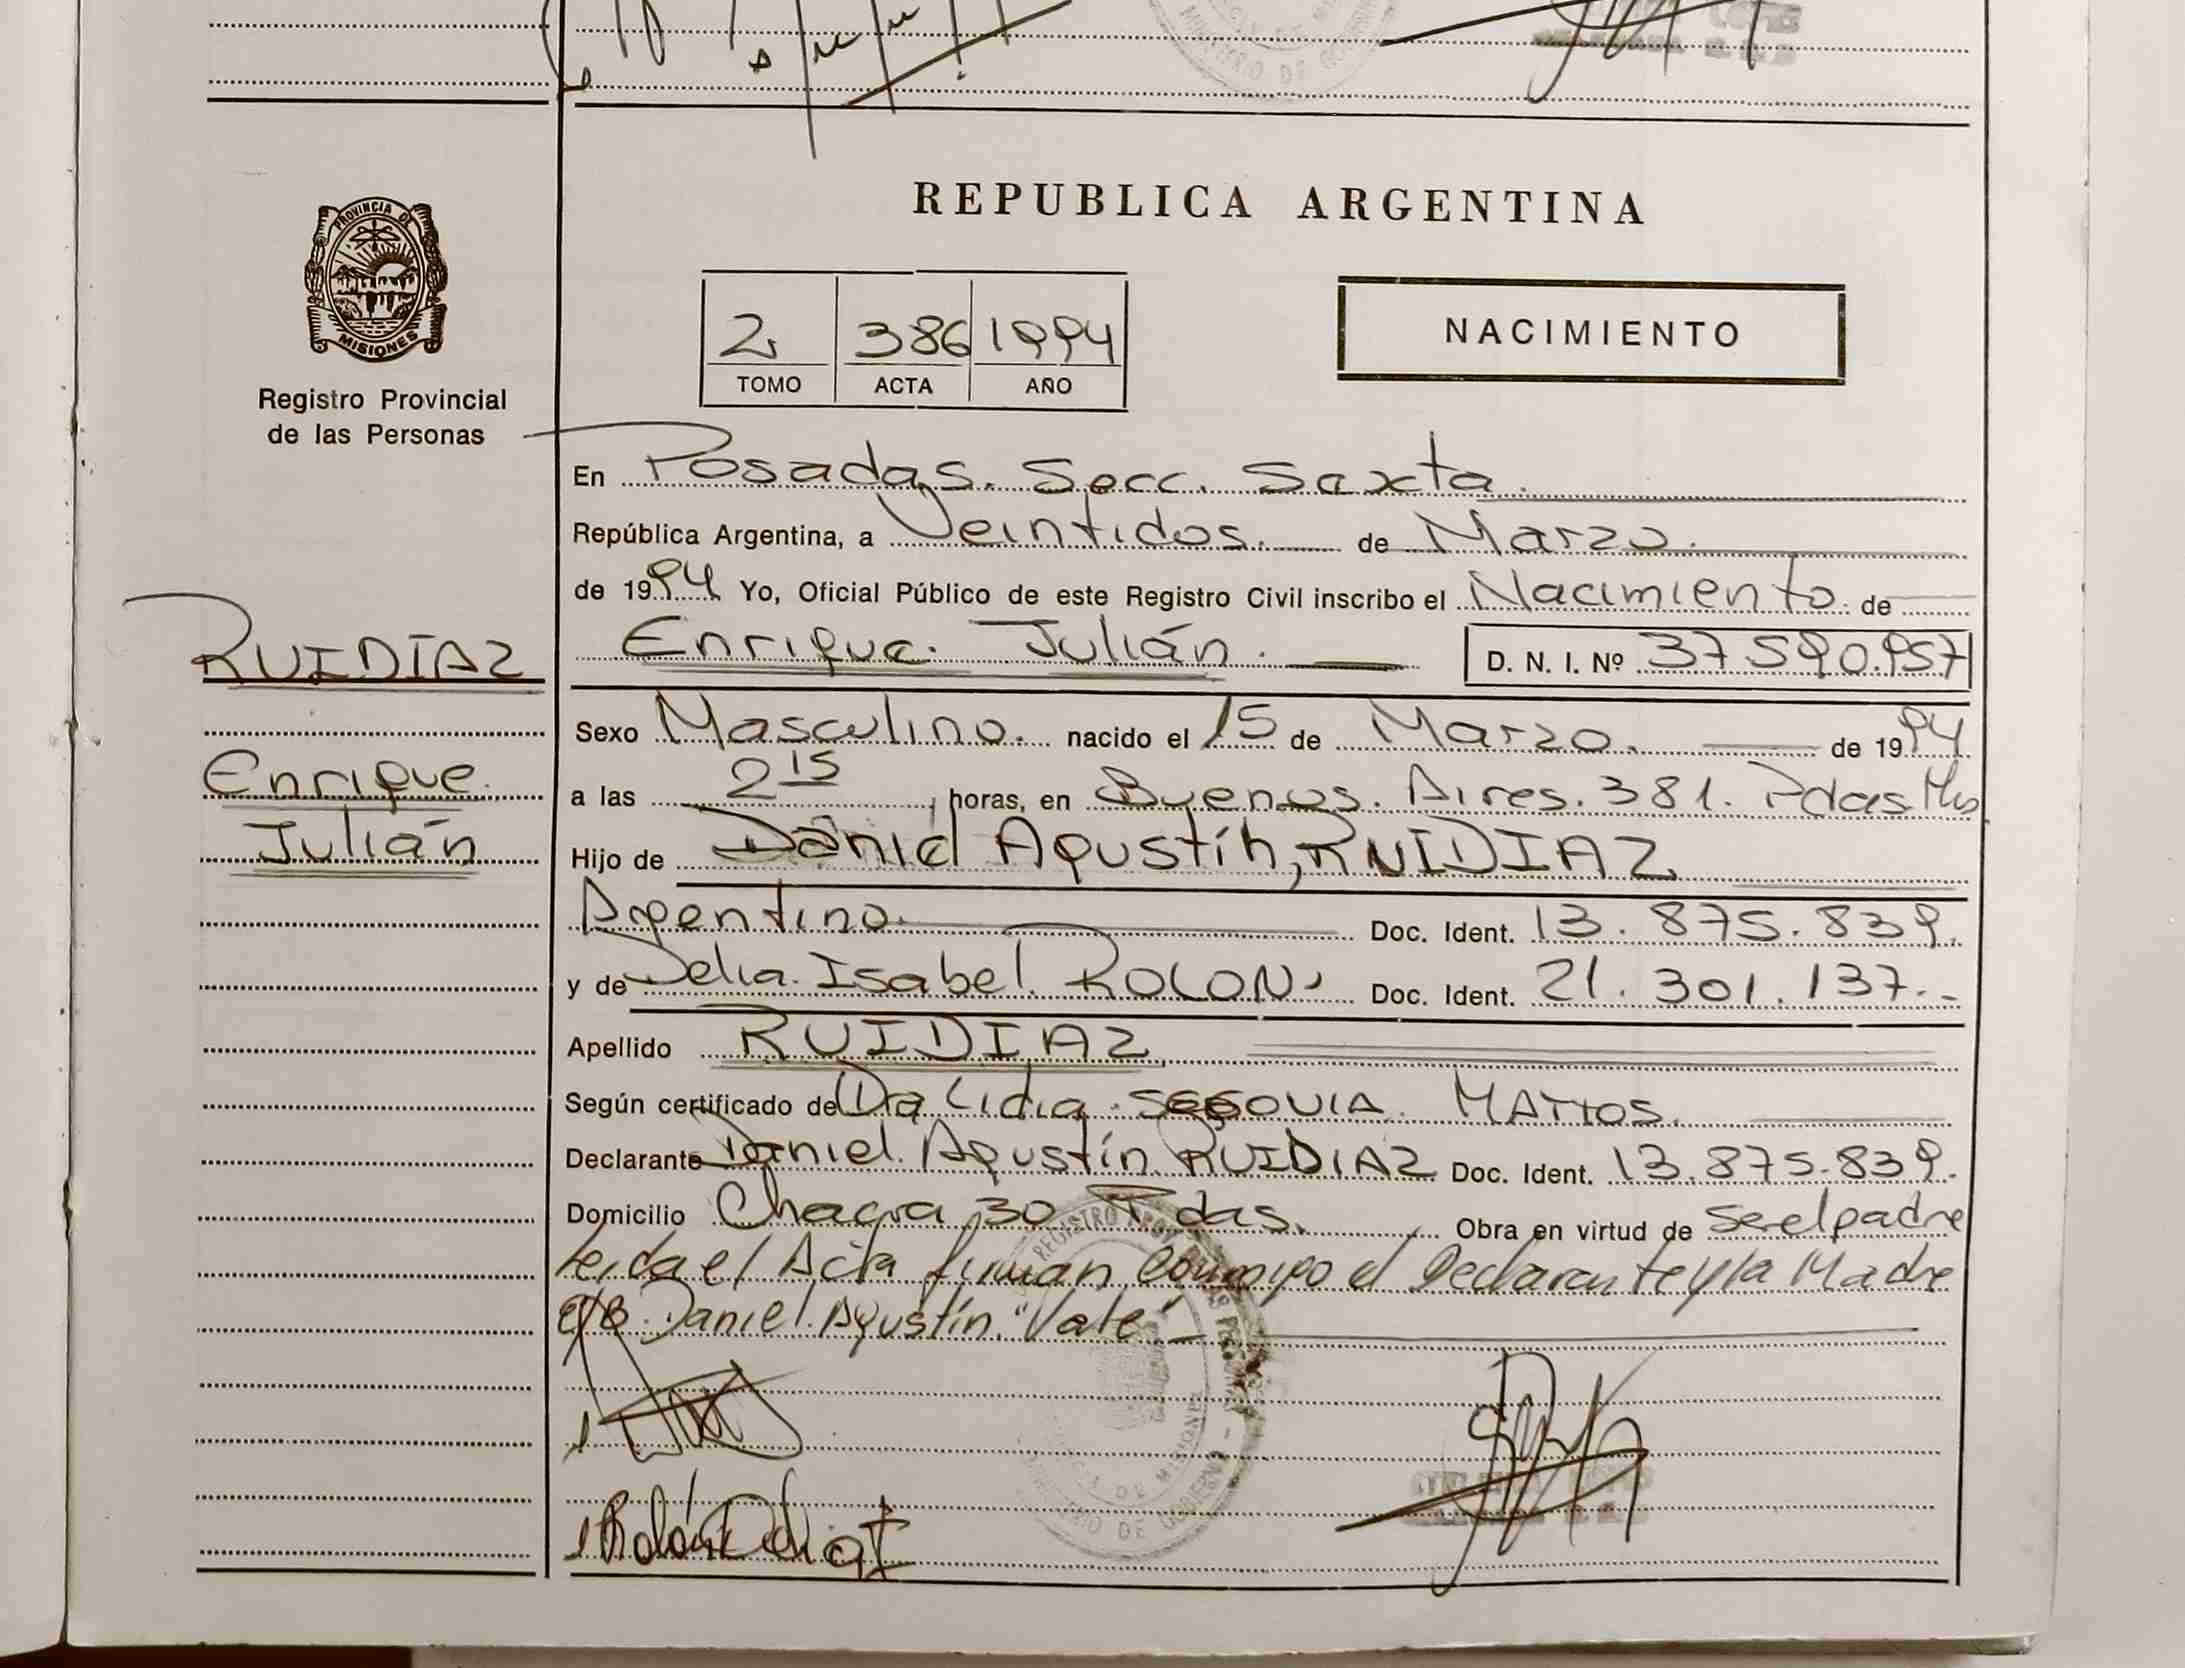 REPUBLICA ARGENTINA
PROVINCIA DE
MISIONES
Registro Provincial
de las Personas
2 386 1994
TOMO ACTA AÑO
NACIMIENTO
En Posadas. Secc. Sexta.
República Argentina, a Veintidos. de Marzo.
de 1994 Yo, Oficial Público de este Registro Civil inscribo el Nacimiento. de
Enrique. Julián. D. N. I. Nº 37590.957
RUIDIAZ
Enrique.
Julián
Sexo Masculino. nacido el 15 de Marzo. de 1994
a las 2 15 horas, en Buenos. Aires. 381. Pdas Mns
Hijo de Daniel Agustín, RUIDIAZ
Argentino. Doc. Ident. 13.875.839.
y de Delia. Isabel. ROLON. Doc. Ident. 21.301.137.-
Apellido RUIDIAZ
Según certificado de Dra Lidia. SEGOVIA. MATTOS.
Declarante Daniel. Agustín. RUIDIAZ Doc. Ident. 13.875.839.
Domicilio Chacra 30 Pdas. Obra en virtud de ser el padre
Leida el Acta firman conmigo el Declarante y la Madre
E/B. Daniel. Agustín. "Vale" _
REGISTRO
MINISTERIO DE GOBIERNO
Rolón Delia I